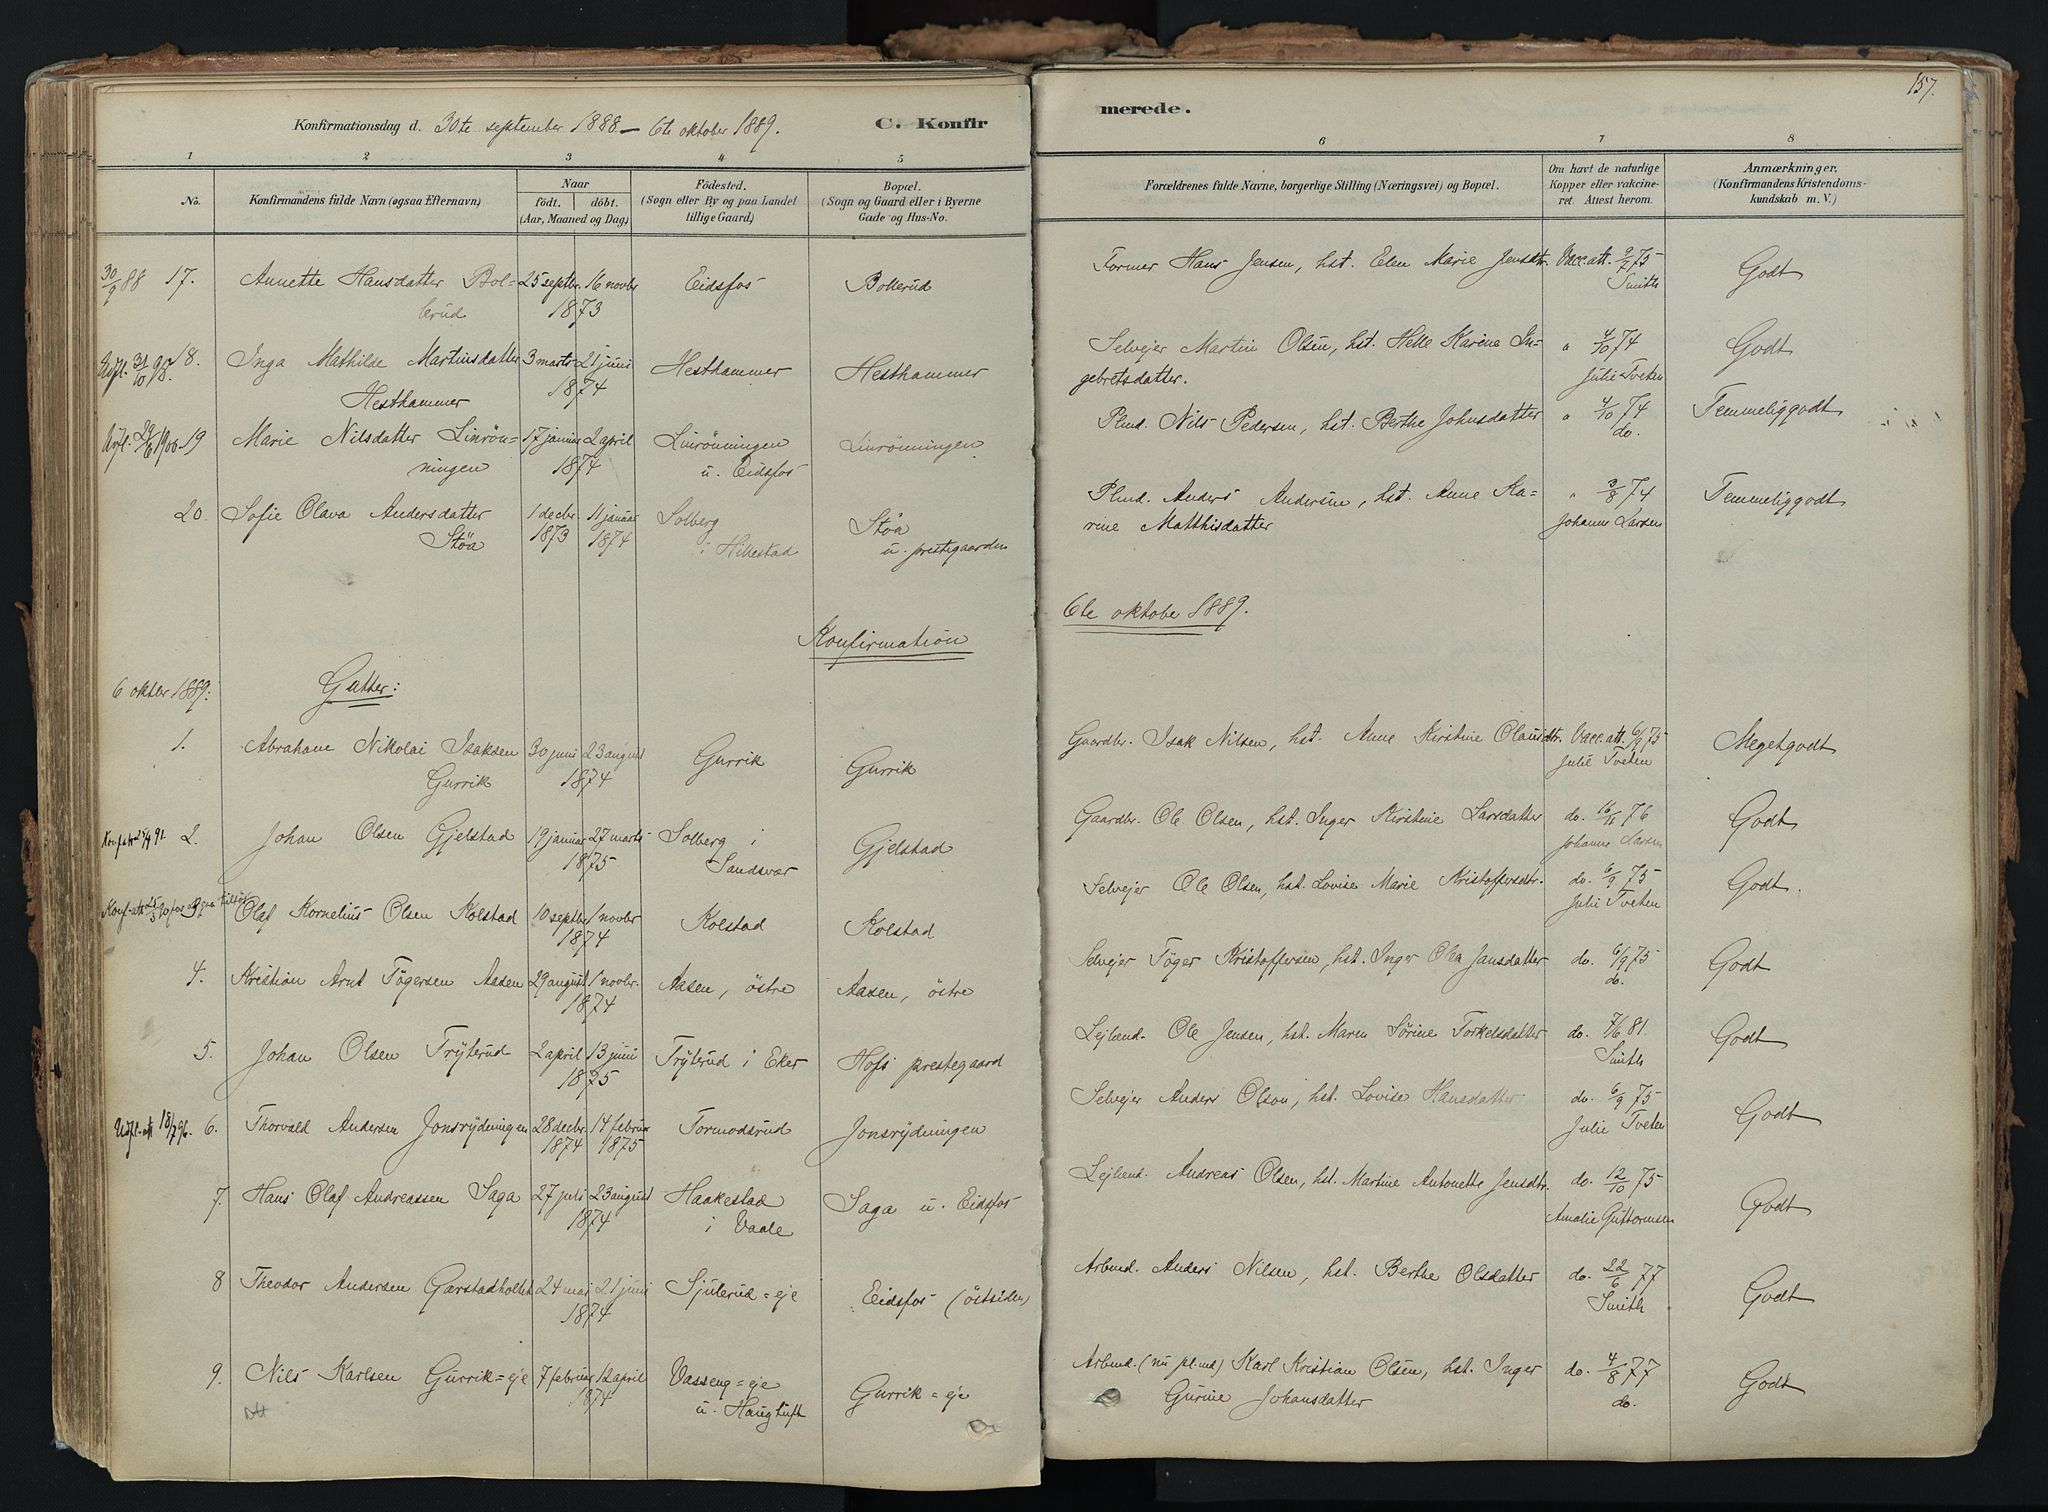 157.
Konfirmationsdag d. 30te september 1888 – 6te oktober 1889. C. Konfir
merede.
1 2 3 4 5 6 7 8
No. Konfirmandens fulde Navn (ogsaa Efternavn) Naar Födested. Bopæl. Forældrenes fulde Navne, borgerlige Stilling (Næringsvei) og Bopæl. Om havt de naturlige Anmærkninger.
födt. döbt. (Sogn eller By og paa Landet (Sogn og Gaard eller i Byerne Kopper eller vakcine- (Konfirmandens Kristendoms-
(Aar, Maaned og Dag) tillige Gaard) Gade og Hus-No. ret. Attest herom. kundskab m. V.)
30/9 88 17. Annette Hansdatter Bol- 25 septbr. 16 novbr Eidsfos Bollerud Former Hans Jensen, hst. Elen Marie Jensdtr. Vacc. att. 9/7 75 Godt
lerud 1873 Smith
Udfl. 31/10 98. 18. Inga Mathilde Martinsdatter 3 marts 21 juni Hesthammer Hesthammer Selvejer Martin Olsen, hst. Helle Karine In- " 4/10 74 Godt
Hesthammer 1874 gebretsdatter. Julie Tveten
19 Marie Nilsdatter Linrön- 17 januar 2 april Linrönningen Linrönningen Plmd. Nils Pedersen, hst. Berthe Johnsdatter " 4/10 74 Temmeliggodt
ningen 1874 u. Eidsfos do.
20. Sofie Olava Andersdatter 1 decbr. 11 januar Solberg Stöa Plmd. Anders Andersen, hst. Anne Ka- " 3/8 74 Temmeliggodt
Stöa 1873 1874 i Hillestad u. prestegaarden rine Matthisdatter Johanne Larsen
Konfirmation 6te oktober 1889.
6 oktbr 1889. Gutter:
1. Abraham Nikolai Isaksen 30 juni 23 august Gurrik Gurrik Gaardbr. Isak Nilsen, hst. Anne Kirstine Olausdtr. Vacc. att. 6/9 75 Megetgodt
Gurrik 1874 Julie Tveten
2. Johan Olsen Gjelstad 19 januar 27 marts Solberg i Gjelstad Gaardbr. Ole Olsen, hst. Inger Kirstine Larsdatter do. 76 Godt
1875 Sandsvær Johanne Larsen
3. Olaf Kornelius Olsen Kolstad 10 septbr 1 novbr Kolstad Kolstad Selvejer Ole Olsen, hst. Lovise Marie Kristoffersdtr. do. 6/9 75 Godt.
1874 Julie Tveten
4. Kristian Arnt Tögersen Aasen 29 august 1 novbr. Aasen, östre Aasen, östre Selvejer Töger Kristoffersen, hst. Inger Olea Jansdatter do. 6/9 75 Godt
1874 do.
5. Johan Olsen Tryterud 2 april 13 juni Tryterud i Eker Hofs prestegaard Lejlend. Ole Jensen, hst. Maren Sörine Torkelsdatter do. 7/6 81. Godt
1875 Smith
Udfl. att 18/7 96. 6. Thorvald Andersen Jonsrydningen 28 decbr. 14 februar Tormodsrud Jonsrydningen Selvejer Anders Olson, hst. Lovise Hansdatter do. 6/9 75 Godt
1874 1875 Julie Tveten
7. Hans Olaf Andreassen Saga 27 juli 23 august Haakestad Saga u. Eidsfos Lejlend. Andreas Olsen, hst. Martine Antonette Jensdtr. do. 12/10 75 Godt
1874 i Vaale Amalie Guttormsen
8 Theodor Andersen Garstadholtet 24 mai 21 juni Sjulerud=eje Eidsfos (östsiden) Arbmd. Anders Nilsen, hst. Berthe Olsdatter do. 22/6 77 Godt
1874 Smith
9. Nils Karlsen Gurrik=eje 7 februar 12 april Vasseng=eje Gurrik=eje Arbmd. (nu pl.md) Karl Kristian Olsen, hst. Inger do. 4/8 77 Godt
1874 u. Haugtuft Gurine Johansdatter do.